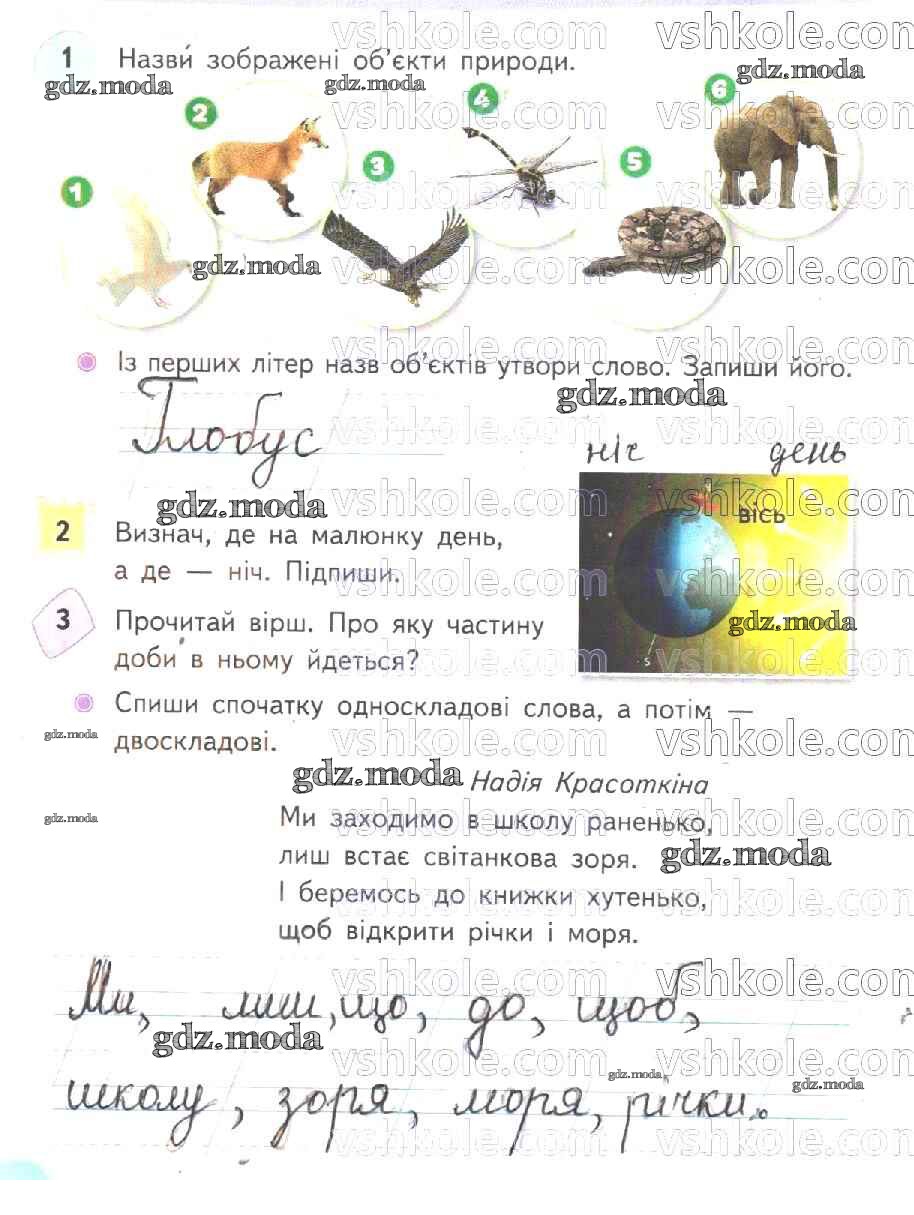 1 Назви́ зображені об’єкти природи.
1 2 3 4 5 6
Із перших літер назв об’єктів утвори слово. Запиши його.
Глобус
ніч день
вісь
S
2 Визнач, де на малюнку день,
а де — ніч. Підпиши.
3 Прочитай вірш. Про яку частину
доби в ньому йдеться?
Спиши спочатку односкладові слова, а потім —
двоскладові.
Надія Красоткіна
Ми заходимо в школу раненько,
лиш встає світанкова зоря.
І беремось до книжки хутенько,
щоб відкрити річки і моря.
Ми, лиш, що, до, щоб,
школу, зоря, моря, річки.
gdz.moda
vshkole.com